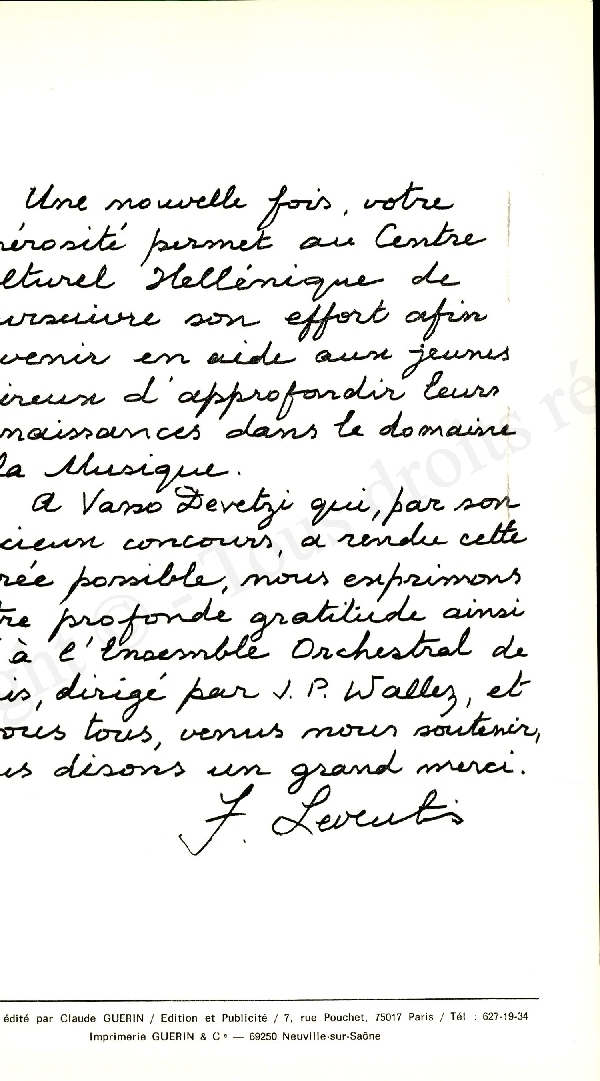 Une nouvelle fois, votre
nérosité permet au Centre
lturel Hellénique de
ursuivre son effort afin
venir en aide aux jeunes
ireux d'approfondir leurs
nnaissances dans le domaine
la Musique.
A Vasso Devetzi qui, par son
cieux concours, a rendu cette
rée possible, nous exprimons
tre profonde gratitude ainsi
à l'Ensemble Orchestral de
is, dirigé par J. P. Wallez, et
ous tous, venus nous soutenir,
us disons un grand merci.
F. Leventis
édité par Claude GUERIN / Edition et Publicité / 7, rue Pouchet, 75017 Paris / Tél : 627-19-34
Imprimerie GUERIN & Cᵉ — 69250 Neuville-sur-Saône
ght © - Tous droits ré